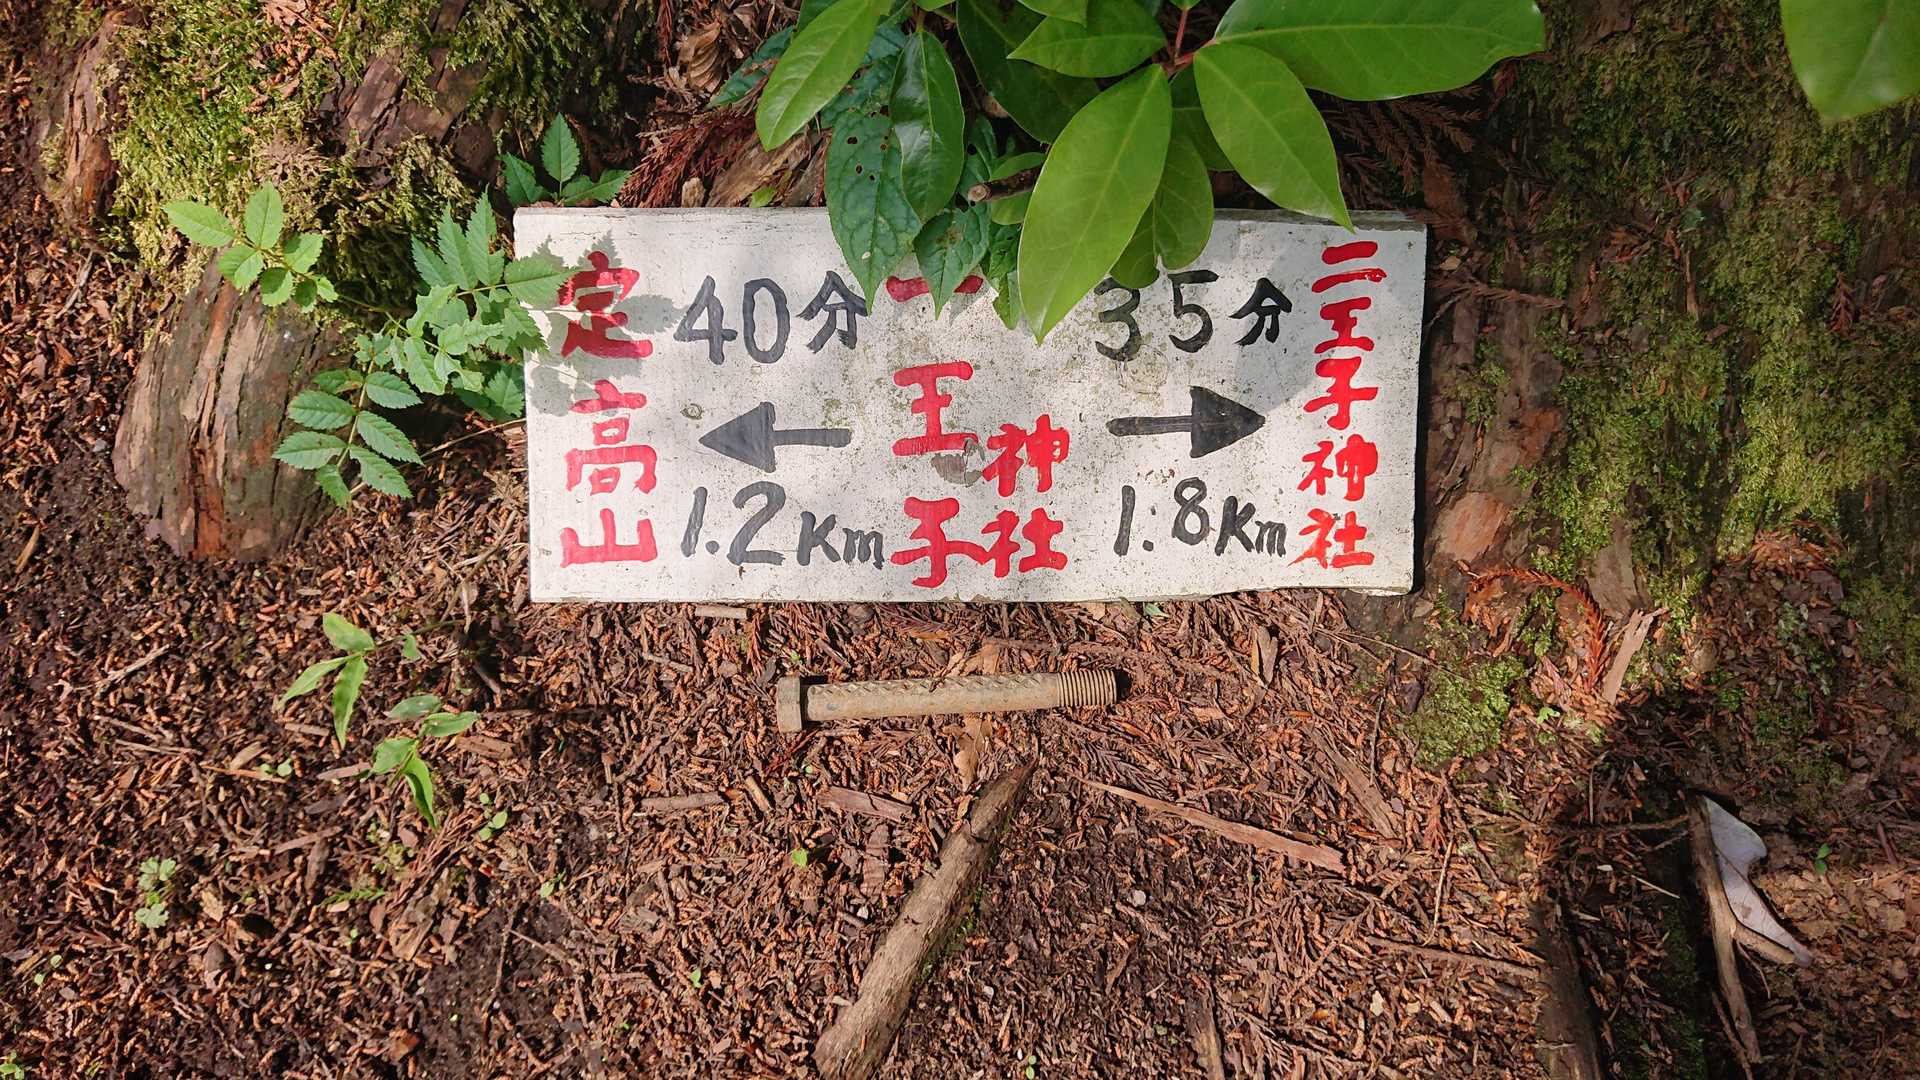 定高山
40分
←
1.2Km
一王子神社
35分
→
1.8Km
二王子神社